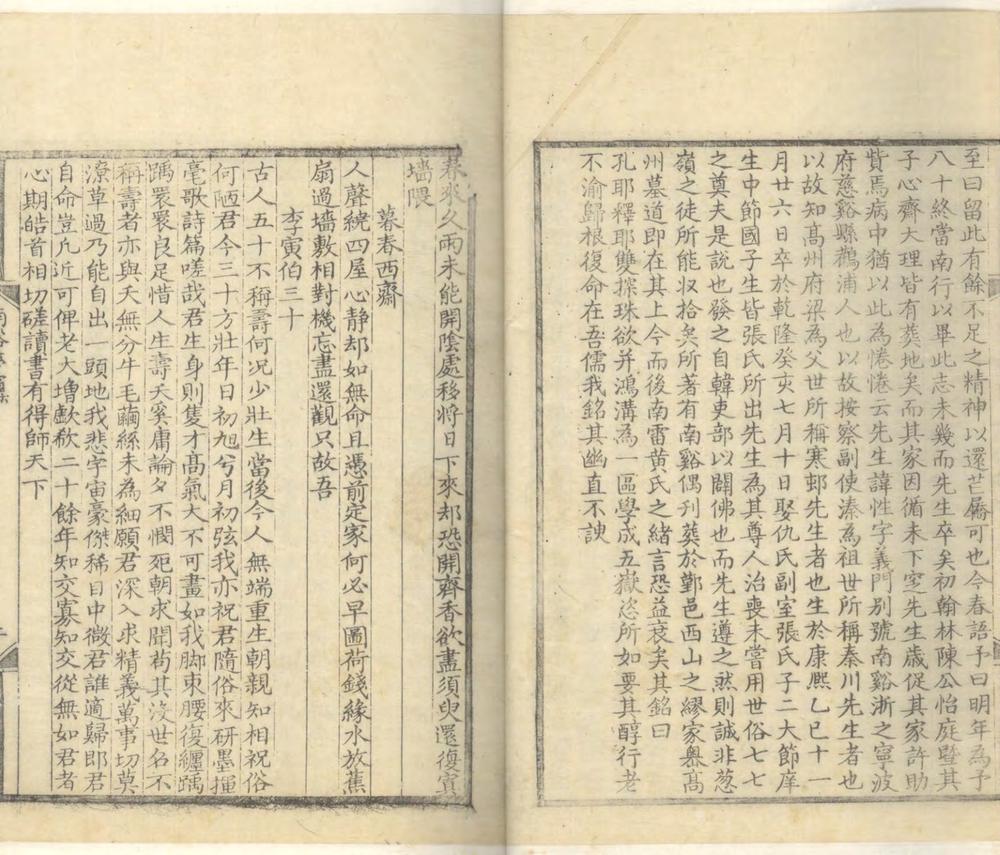 至曰留此有餘不足之精神以還芒屩可也今春語予曰明年為予
八十終當南行以畢此志未幾而先生卒矣初翰林陳公怡庭暨其
子心齋大理皆有葬地矣而其家因循未下窆先生歳促其家許助
貲焉病中猶以此為惓惓云先生諱性字義門別號南谿浙之寧波
府慈谿縣鸛浦人也以故按察副使溱為祖世所稱秦川先生者也
以故知髙州府梁為父世所稱寒邨先生者也生於康熈乙巳十一
月廿六日卒於乾隆癸亥七月十日娶仇氏副室張氏子二大節庠
生中節國子生皆張氏所出先生為其尊人治喪未嘗用世俗七七
之奠夫是說也發之自韓吏部以闢佛也而先生遵之然則誠非葱
嶺之徒所能収拾矣所著有南谿偶刊葬於鄞邑西山之繆家嶴髙
州墓道即在其上今而後南雷黄氏之緒言恐益衰矣其銘曰
孔耶釋耶雙探珠欲并鴻溝為一區學成五嶽恣所如要其醇行老
不渝歸根復命在吾儒我銘其幽直不諛
春來久雨未能開陰處移將日下來却恐開齊香欲盡須臾還復寘
墻隈
暮春西齋
人聲繞四屋心静却如無命且憑前定家何必早圖荷錢緣水放蕉
扇過墻敷相對機忘盡還觀只故吾
李寅伯三十
古人五十不稱壽何况少壯生當後今人無端重生朝親知相祝俗
何陋君今三十方壯年日初旭兮月初弦我亦祝君隨俗來研墨揮
毫歌詩篇嗟哉君生身則隻才髙氣大不可畫如我脚朿腰復纏踽
踽睘睘良足惜人生壽夭奚庸論夕不憫死朝求聞苟其沒世名不
稱壽者亦與夭無分牛毛繭絲未為細願君深入求精義萬事切莫
潦草過乃能自出一頭地我悲宇宙豪傑稀目中微君誰適歸即君
自命豈凡近可俾老大增歔欷二十餘年知交寡知交從無如君者
心期皓首相切磋讀書有得師天下